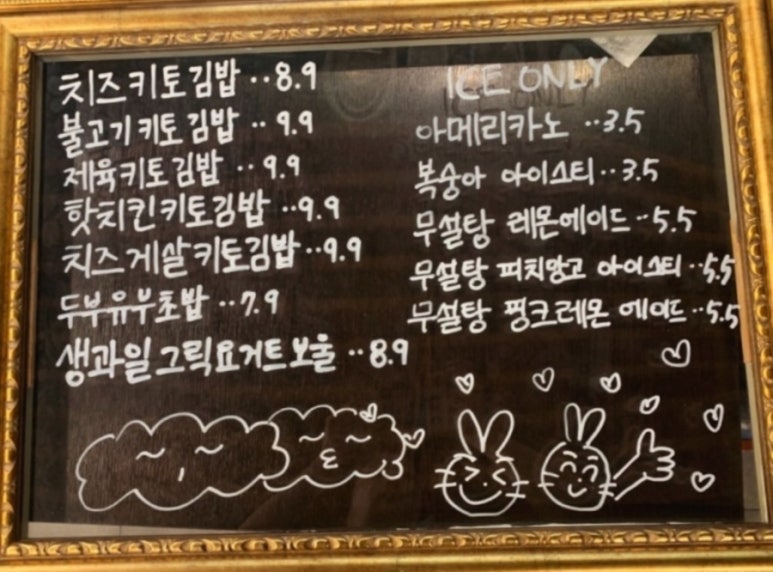 치즈키토김밥 ‥8.9
불고기키토김밥 ‥9.9
제육키토김밥 ‥9.9
핫치킨키토김밥 ‥9.9
치즈게살키토김밥 ‥9.9
두부유부초밥 ‥7.9
생과일그릭요거트보울 ‥8.9
ICE ONLY
아메리카노 ‥3.5
복숭아 아이스티 ‥3.5
무설탕 레몬에이드 ‥5.5
무설탕 피치망고 아이스티 ‥5.5
무설탕 핑크레몬 에이드 ‥5.5